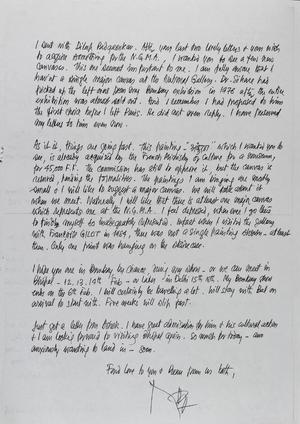 I sent with Dilip Padgaonkar. After your last two lovely letters & your wish
to acquire something for the N.G.M.A., I wanted you to see a few new
canvases. This one seemed important to me. I am fully aware that I
have not a single major canvas at the National Gallery. Dr. Sihare had
picked at the last one from my Bombay exhibition in 1976 after the entire
exhibition was almost sold out. Since I remember I had proposed to him
the first choice before I left Paris. He did not even reply. I have preserved
my letters to him even now.
As it is, things are going fast. This painting which I wanted you to
see, is already acquired by the French Ministry of Culture for a museum,
for 45,000 F.F. The commission has still to approve it, but the canvas is
reserved pending the formalities. The paintings I am bringing are mostly
small & I will like to suggest a major canvas. We will talk about it
when we meet. Naturally I will like that there is at least one major canvas
which represents me at the N.G.M.A. I feel depressed, when I go there
to find myself so inadequately represented. Infact when I visited the Gallery
with Françoise GILOT in 1984, there was not a single painting shown
them. Only one print was hanging on the staircase.
I hope you are in Bombay by chance, during my show - or we can meet in
Bhopal - 12, 13, 14th Feb - or later in Delhi 15th Feb. My Bombay show
ends on the 6th Feb. I will certainly be travelling a lot. Will stay with Bal on
arrival to start with. Five weeks will slip fast.
Just got a letter from Ashok. I have great admiration for him & his cultural action
& I am looking forward to visiting Bhopal again. So much for today - am
anxiously wanting to land in - soon.
Fond love to you & from us both,